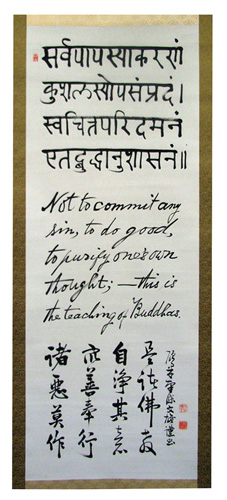 सर्वपापस्याकरणं
कुशलस्योपसंप्रदं।
स्वचित्तपरिदमनं
एतद्बुद्धानुशासनं॥
Not to commit any
sin, to do good,
to purify one's own
thought; — this is
the teaching of Buddhas.
諸惡莫作
衆善奉行
自淨其意
是諸佛教